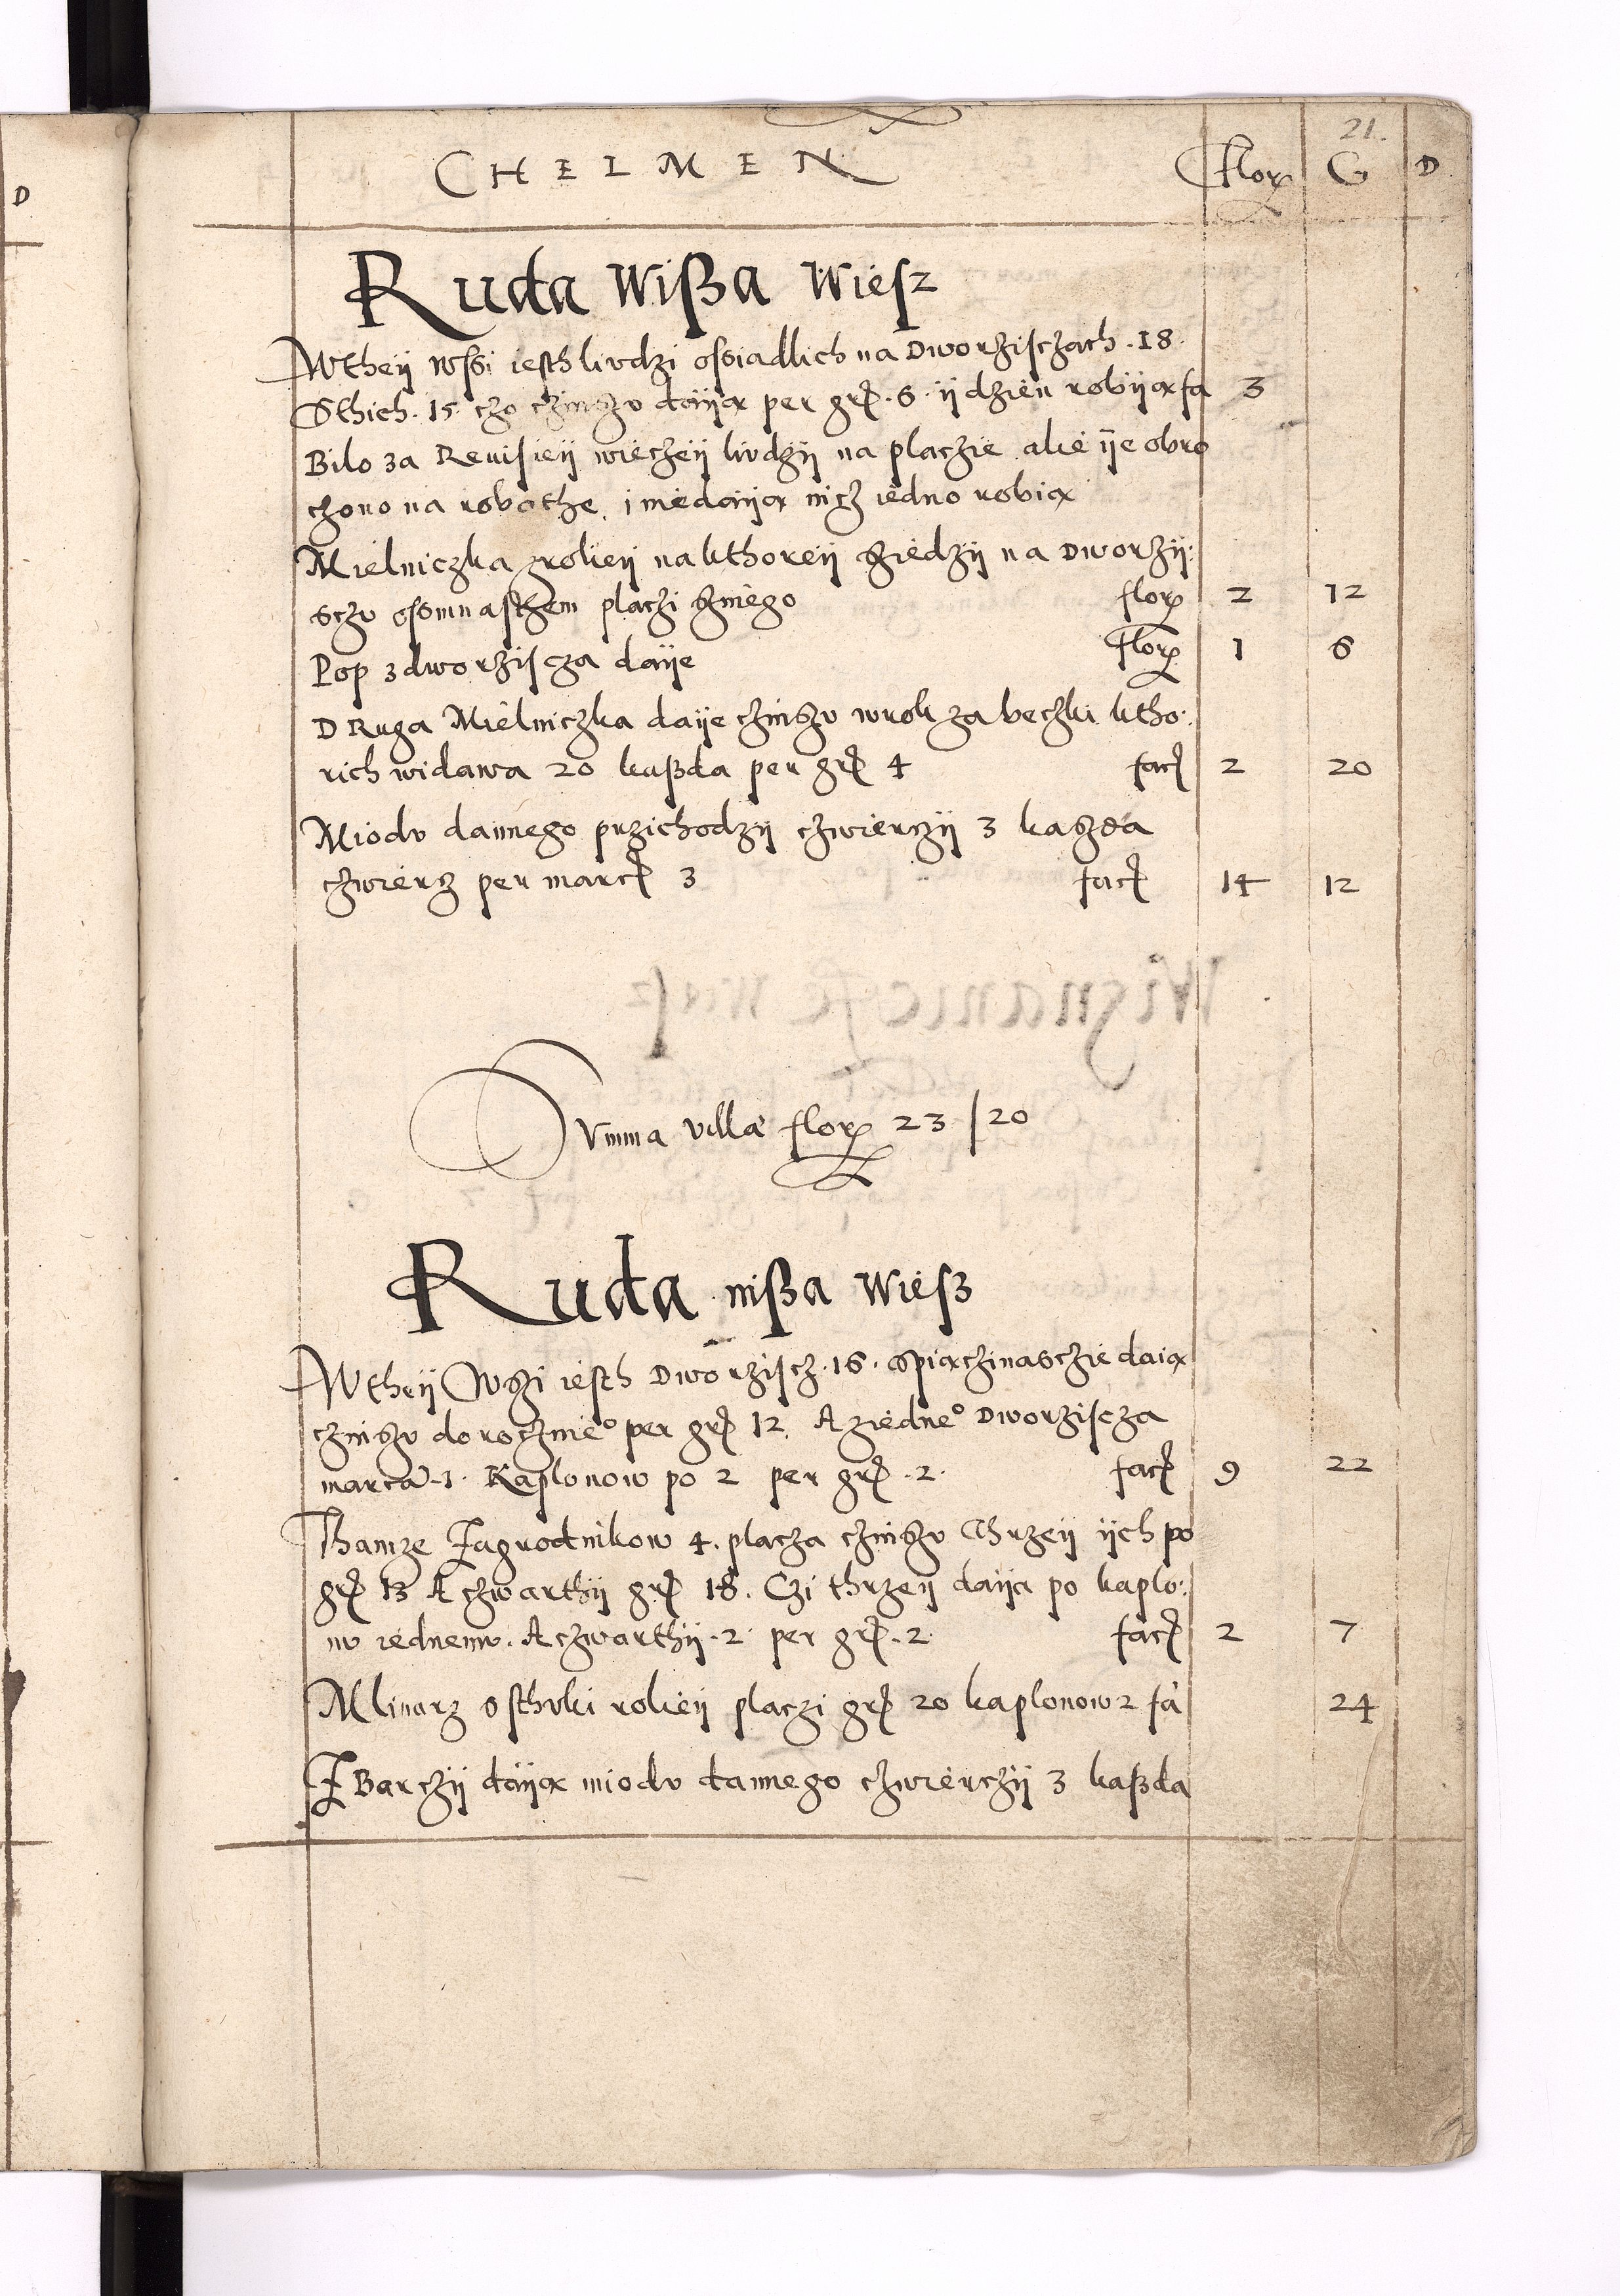 21.
CHELMEN Flor G D
D
Ruda Wißa Wiesz
Wtheÿ wssi iesth liudzi ossiadlich na Dworzisczach . 18 .
Sthich . 15 . czo czinszu daÿą per gr . 6 . ÿ dzień robÿą fa 3
Bilo za Reuisieÿ wieczeÿ liudzÿ na placzie ale ÿe obro
czono na robothe, i niedaÿą nicz iedno robią
Mielniczka zroleÿ na kthoreÿ sziedzÿ na Dworzÿ:
sczu osmnasthem placzi szniego flor 2 12
Pop z dworziscza daÿe Flor 1 6
DRuga Mielniczka daÿe czinszu wrok za beczki ktho:
rich widawa 20 kaßda per gr 4 fac 2 20
Miodu dannego przichodzÿ czwierczÿ 3 kaszda
czwiercz per marc 3 fac 14 12
Summa villæ flor 23 / 20
Ruda nißa Wiesz
Wtheÿ Wszi iesth Dworziscz . 16 . Spiączinasczie daią
czinszu doroczne° per gr 12, A ziedne° Dworziscza
marca . 1 . Kaplonow po 2 per gr . 2 . fac 9 22
Thamze Zagrodnikow 4 . placza czinszu Thrzeÿ ÿch po
gr 13 A czwarthÿ gr 18 . Czi thrzeÿ daÿa po kaplo:
nu iednemu . A czwarthÿ . 2 . per gr . 2 . fac 2 7
Mlinarz Osthuki roleÿ placzi gr 20 kaplonow 2 fa 24
Z Barczÿ daÿą miodu dannego czwierczÿ 3 kaßda